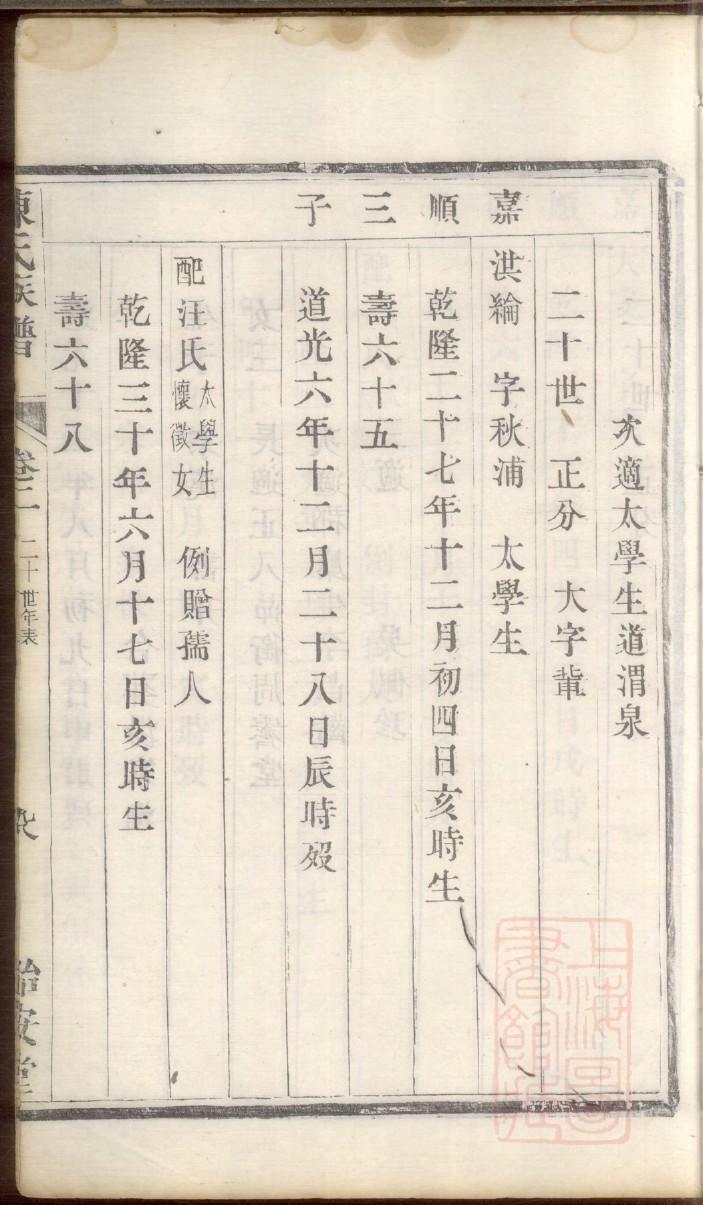 次適太學生道渭泉
二十世 正分 大字輩
嘉順三子
洪綸 字秋浦 太學生
乾隆二十七年十二月初四日亥時生
壽六十五
道光六年十二月二十八日辰時歿
配汪氏太學生懷徵女 例贈孺人
乾隆三十年六月十七日亥時生
壽六十八
陳氏族譜 卷二 二十世年表
治安堂
上海圖書館藏